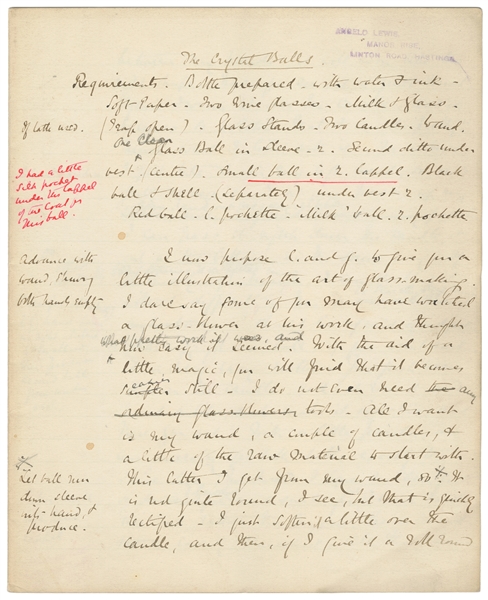 ANGELO LEWIS,
The Crystal Balls.
Requirements. Bottle prepared - with water & ink -
Soft Paper - Two Wine glasses - Milk & Glass -
If latter used. (Trap open) - Glass Stands - Two Candles - Wand.
One Clear Glass Ball in Sleeve - r. Second ditto under
vest (centre). Small ball in r. Lappel. Black
ball & shell (separately) under vest r.
Red ball - l. pochette - "Milk" ball - r. pochette
I had a little
silk pocket
under the lappel
of the coat for
this ball.
Advance with
wand, showing
both hands empty
I now propose l. and g. to give you a
little illustration of the art of glass-making.
I dare say some of you may have watched
a glass-blower at his work, and thought
what pretty work it was, and
how easy it seemed. With the aid of a
little magic, you will find that it becomes
easier still - I do not even need any
ordinary glass-blowers tools - All I want
is my wand, a couple of candles, &
a little of the raw material to start with.
This latter I get from my wand, so. It
is not quite round, I see, but that is quickly
rectified - I just soften it a little over the
candle, and then, if I give it a roll round
Let ball run
down sleeve
into hand, &
produce.